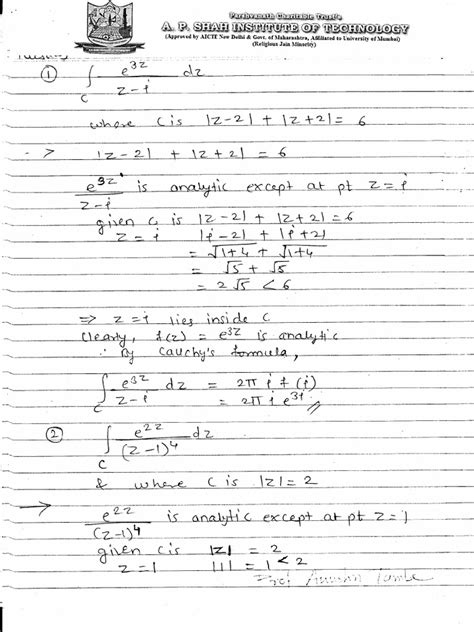 Parshvanath Charitable Trust's
A. P. SHAH INSTITUTE OF TECHNOLOGY
(Approved by AICTE New Delhi & Govt. of Maharashtra, Affiliated to University of Mumbai)
(Religious Jain Minority)
① ∫_C e^{3z}/(z-i) dz
where C is |z-2| + |z+2| = 6
-> |z-2| + |z+2| = 6
e^{3z}/(z-i) is analytic except at pt z = i
given C is |z-2| + |z+2| = 6
z = i |i-2| + |i+2|
= √(1+4) + √(1+4)
= √5 + √5
= 2√5 < 6
=> z = i lies inside C
Clearly, f(z) = e^{3z} is analytic
∴ By Cauchy's formula,
∫_C e^{3z}/(z-i) dz = 2π i f(i)
= 2π i e^{3i} //
② ∫_C e^{2z}/(z-1)^4 dz
& where C is |z| = 2
-> e^{2z}/(z-1)^4 is analytic except at pt z = 1
given C is |z| = 2
z = 1 |1| = 1 < 2
Prof